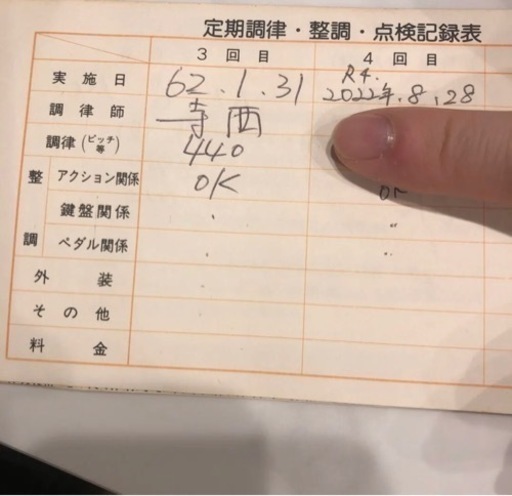 定期調律・整調・点検記録表
3回目 4回目
実施日 62.1.31 R4. 2022年.8.28
調律師 寺西
調律(ピッチ等) 440
整調 アクション関係 OK OK
鍵盤関係 〃
ペダル関係 〃
外装
その他
料金